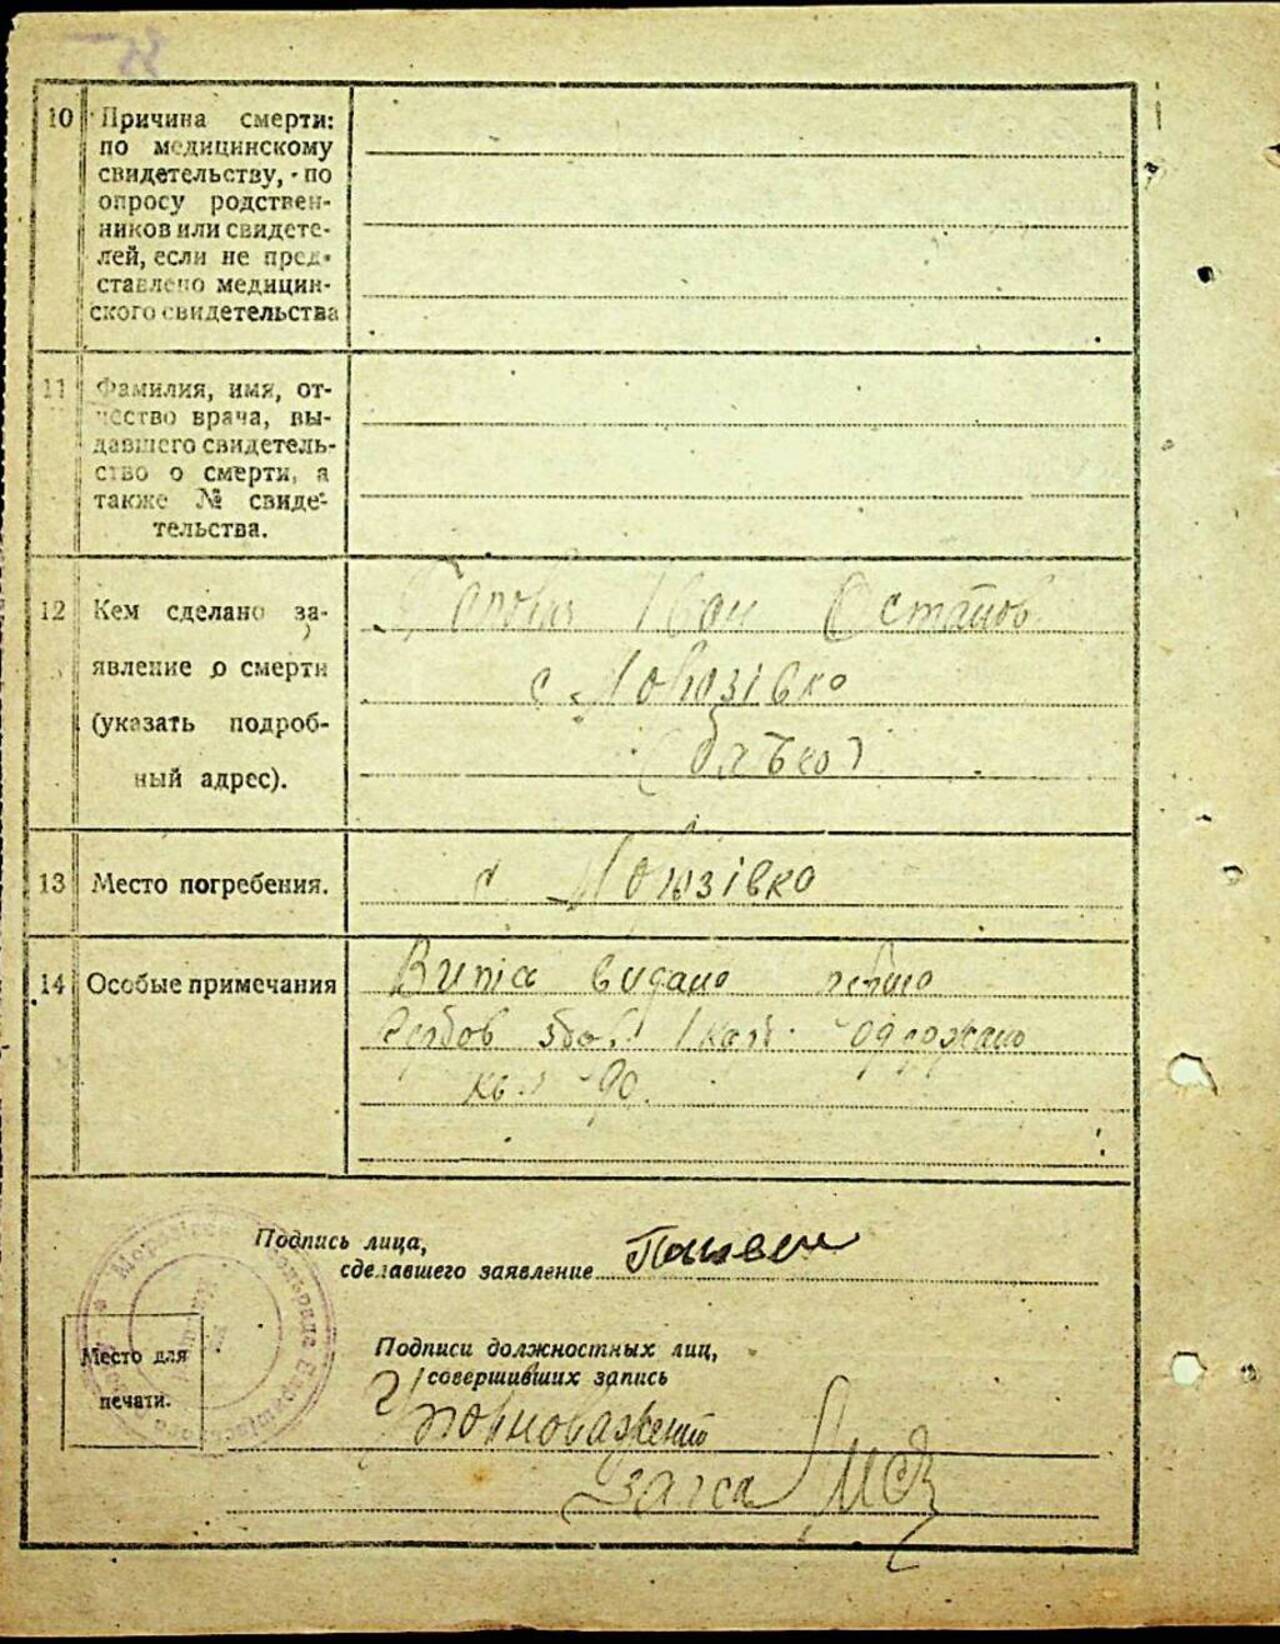 10 Причина смерти:
по медицинскому
свидетельству, по
опросу родствен-
ников или свидете-
лей, если не пред-
ставлено медицин-
ского свидетельства
11 Фамилия, имя, от-
чество врача, вы-
давшего свидетель-
ство о смерти, а
также № свиде-
тельства.
12 Кем сделано за-
явление о смерти
(указать подроб-
ный адрес).
Іван Остапов
с. Морозівка
(батько)
13 Место погребения.
с Морозівка
14 Особые примечания
Випис видано
одержано
Подпись лица,
сделавшего заявление
Место для
печати.
Подписи должностных лиц,
совершивших запись
Уповноважений
загса